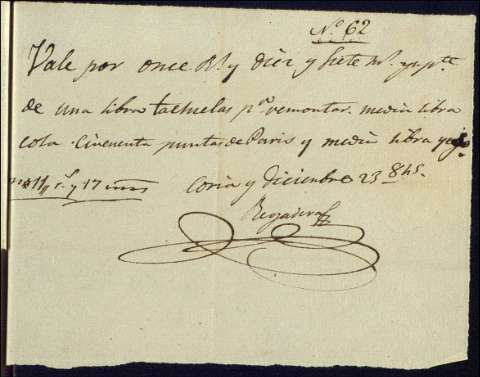 Nº 62
Vale por once Rs. y diez y siete ms. ympte.
de una libra tachuelas pa. remontar. media libra
cola. Cincuenta puntas de Paris y media libra
11 rs. y 17 mrs Coria y diciembre 23 845.